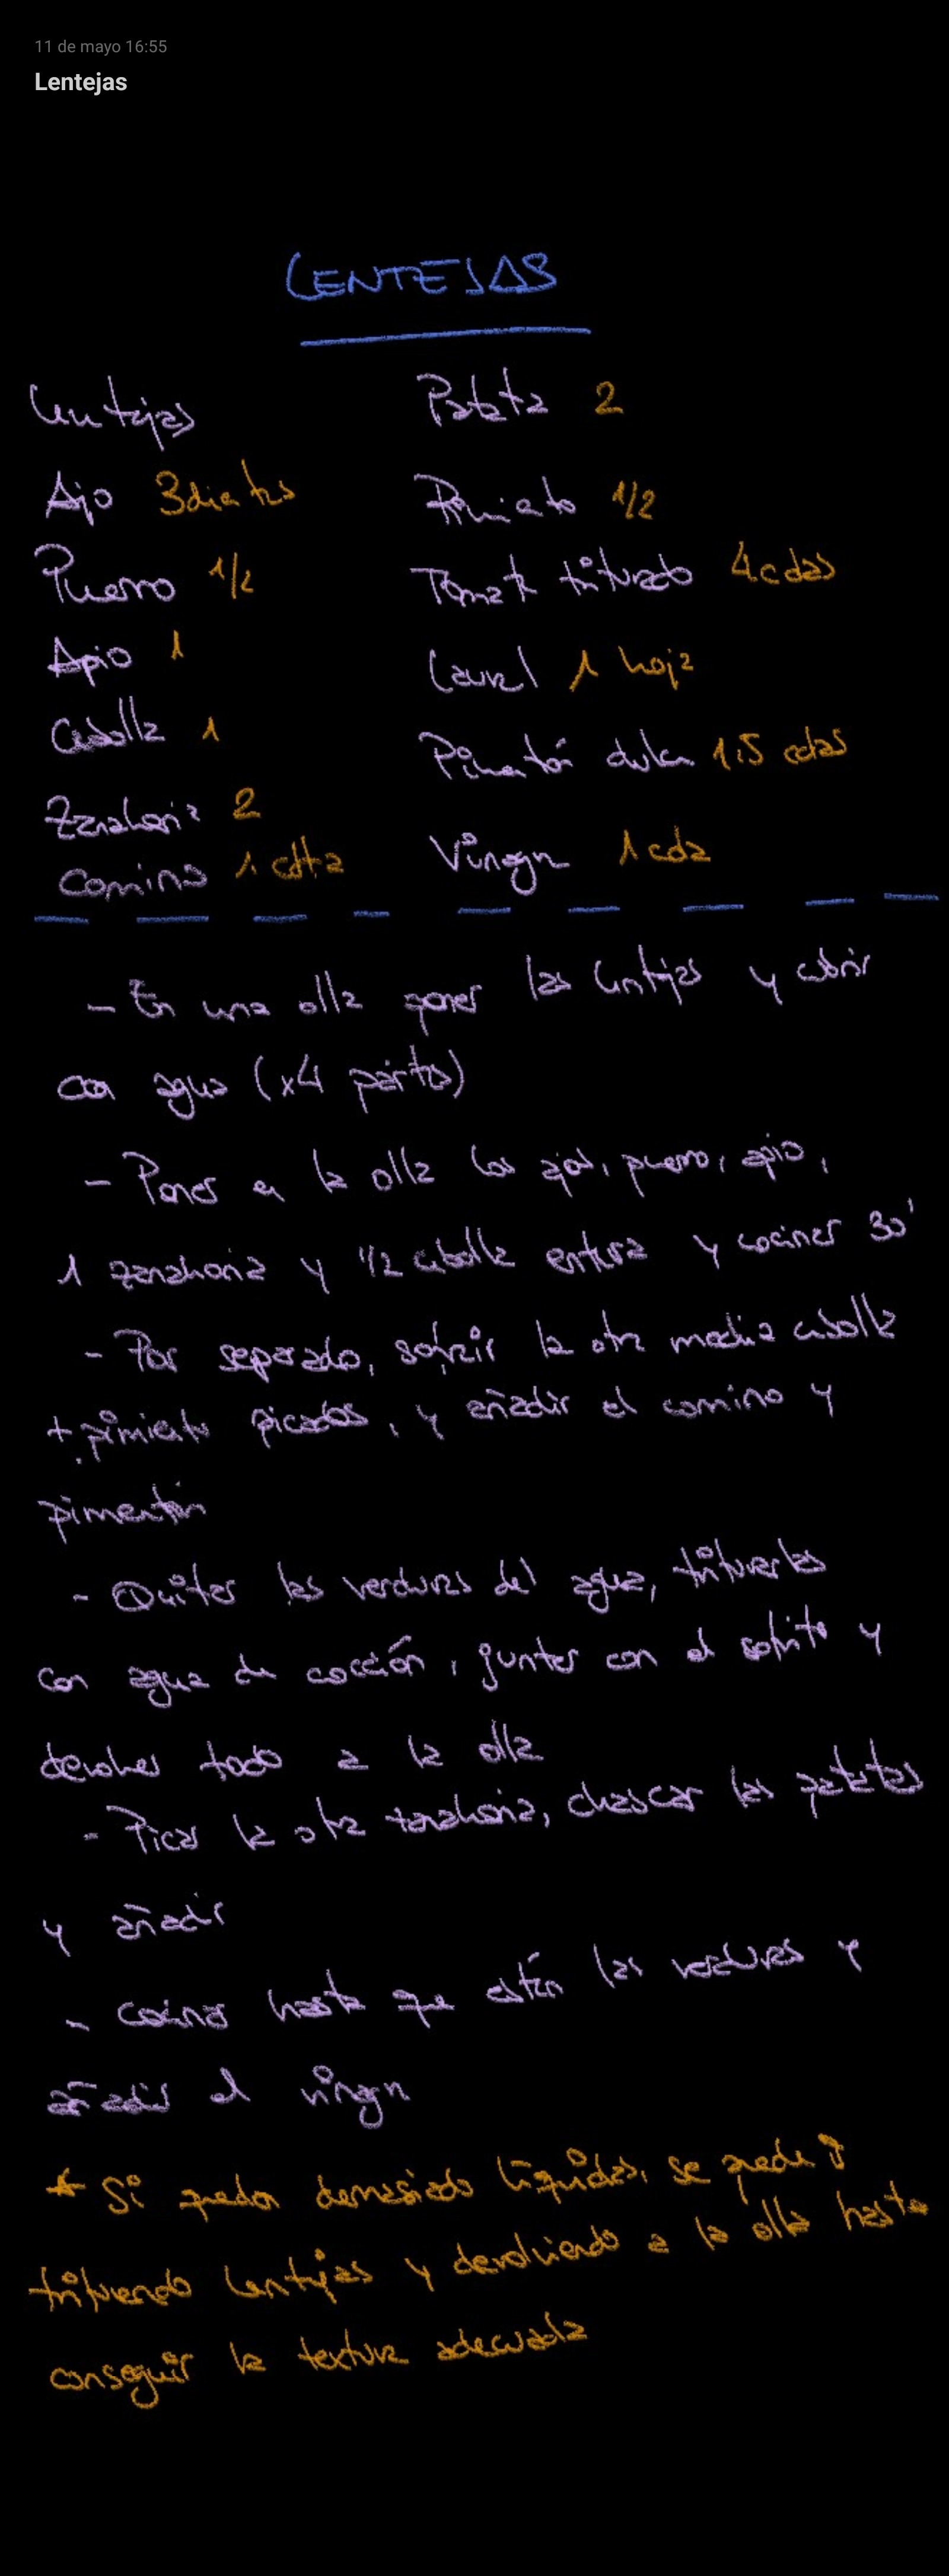 11 de mayo 16:55
Lentejas
LENTEJAS
Lentejas
Ajo 3 dientes
Puerro 1/2
Apio 1
Cebolla 1
Zanahoria 2
Comino 1 cdta
Patata 2
Pimiento 1/2
Tomate triturado 4 cdas
Laurel 1 hoja
Pimentón dulce 1.5 cdas
Vinagre 1 cda
- En una olla poner las lentejas y cubrir
con agua (x4 partes)
- Poner en la olla los ajos, puerro, apio,
1 zanahoria y 1/2 cebolla entera y cocinar 30'
- Por separado, sofreir la otra media cebolla
+ pimiento picados, y añadir el comino y
pimentón
- Quitar las verduras del agua, triturarlas
con agua de cocción, juntar con el sofrito y
devolver todo a la olla
- Picar la otra zanahoria, chascar las patatas
y añadir
- Cocinar hasta que estén las verduras y
añadir el vinagre
* Si quedan demasiado líquidas, se puede ir
triturando lentejas y devolviendo a la olla hasta
conseguir la textura adecuada